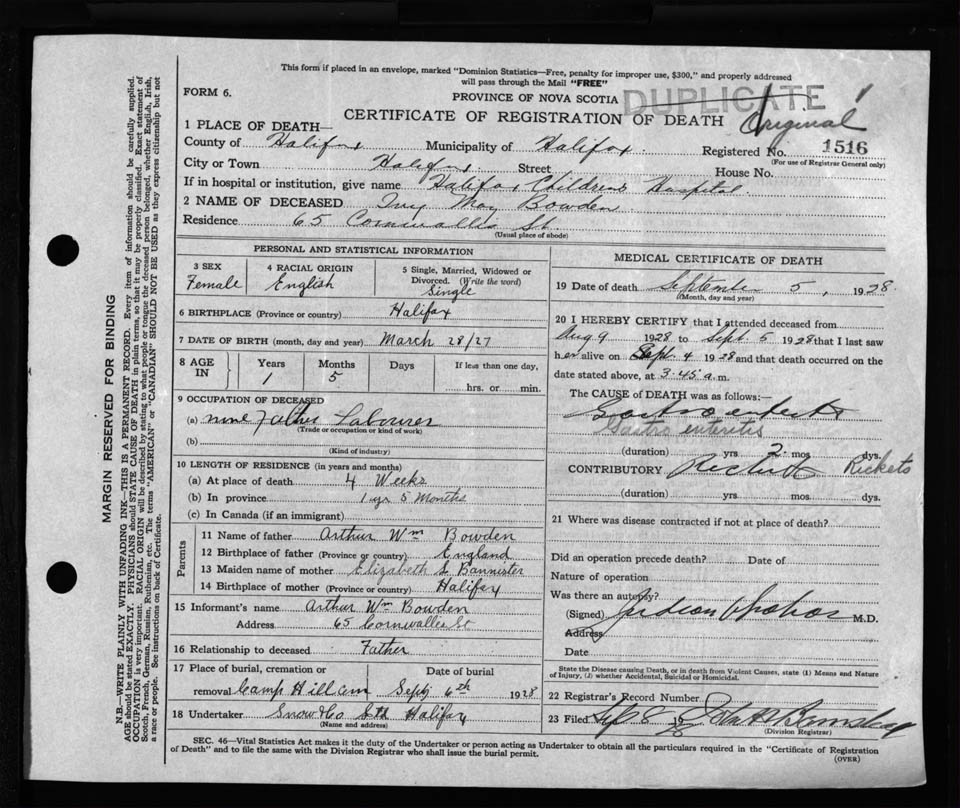 This form if placed in an envelope, marked "Dominion Statistics—Free, penalty for improper use, $300," and properly addressed
will pass through the Mail "FREE"
FORM 6.
PROVINCE OF NOVA SCOTIA
DUPLICATE !
CERTIFICATE OF REGISTRATION OF DEATH
Original
1 PLACE OF DEATH—
County of Halifax Municipality of Halifax Registered No. 1516
(For use of Registrar General only)
City or Town Halifax Street House No.
If in hospital or institution, give name Halifax Childrens Hospital
2 NAME OF DECEASED May Bowden
Residence 65 Cornwallis St.
(Usual place of abode)
PERSONAL AND STATISTICAL INFORMATION
3 SEX
Female
4 RACIAL ORIGIN
English
5 Single, Married, Widowed or
Divorced. (Write the word)
Single
6 BIRTHPLACE (Province or country) Halifax
7 DATE OF BIRTH (month, day and year) March 28/27
8 AGE IN Years Months Days If less than one day,
1 5 hrs. or min.
9 OCCUPATION OF DECEASED
(a) none Father Labourer
(Trade or occupation or kind of work)
(b)
(Kind of industry)
10 LENGTH OF RESIDENCE (in years and months)
(a) At place of death 4 Weeks
(b) In province 1 yr 5 Months
(c) In Canada (if an immigrant)
Parents
11 Name of father Arthur Wm Bowden
12 Birthplace of father (Province or country) England
13 Maiden name of mother Elizabeth Bannister
14 Birthplace of mother (Province or country) Halifax
15 Informant's name Arthur Wm Bowden
Address 65 Cornwallis St
16 Relationship to deceased Father
17 Place of burial, cremation or Date of burial
removal Camp Hill Cem Sept 6th 1928
18 Undertaker Snow & Co Ltd Halifax
(Name and address)
MEDICAL CERTIFICATE OF DEATH
19 Date of death September 5, 1928.
(Month, day and year)
20 I HEREBY CERTIFY that I attended deceased from
Aug 9 1928 to Sept. 5 1928 that I last saw
her alive on Sept. 4 1928 and that death occurred on the
date stated above, at 3.45 a.m.
The CAUSE of DEATH was as follows:
Gastro enteritis
Gastro enteritis
(duration) yrs 2 mos. dys.
CONTRIBUTORY Rickets Rickets
(duration) yrs mos. dys.
21 Where was disease contracted if not at place of death?
Did an operation precede death? Date of
Nature of operation
Was there an autopsy?
(Signed) M.D.
Address
Date
State the Disease causing Death, or in death from Violent Causes, state (1) Means and Nature
of Injury, (2) whether Accidental, Suicidal or Homicidal.
22 Registrar's Record Number
23 Filed Sept 8 1928
(Division Registrar)
SEC. 46—Vital Statistics Act makes it the duty of the Undertaker or person acting as Undertaker to obtain all the particulars required in the "Certificate of Registration
of Death" and to file the same with the Division Registrar who shall issue the burial permit.
(OVER)
MARGIN RESERVED FOR BINDING
N.B.—WRITE PLAINLY WITH UNFADING INK—THIS IS A PERMANENT RECORD. Every item of information should be carefully supplied.
AGE should be stated EXACTLY. PHYSICIANS should STATE CAUSE OF DEATH in plain terms, so that it may be properly classified. Exact statement of
OCCUPATION is very important. RACIAL ORIGIN will be described by stating to what people or tongue the deceased person belonged, whether English, Irish,
Scotch, French, German, Russian, Ruthenian, etc. The terms "AMERICAN" or "CANADIAN" SHOULD NOT BE USED as they express citizenship but not
a race or people. See instructions on back of Certificate.